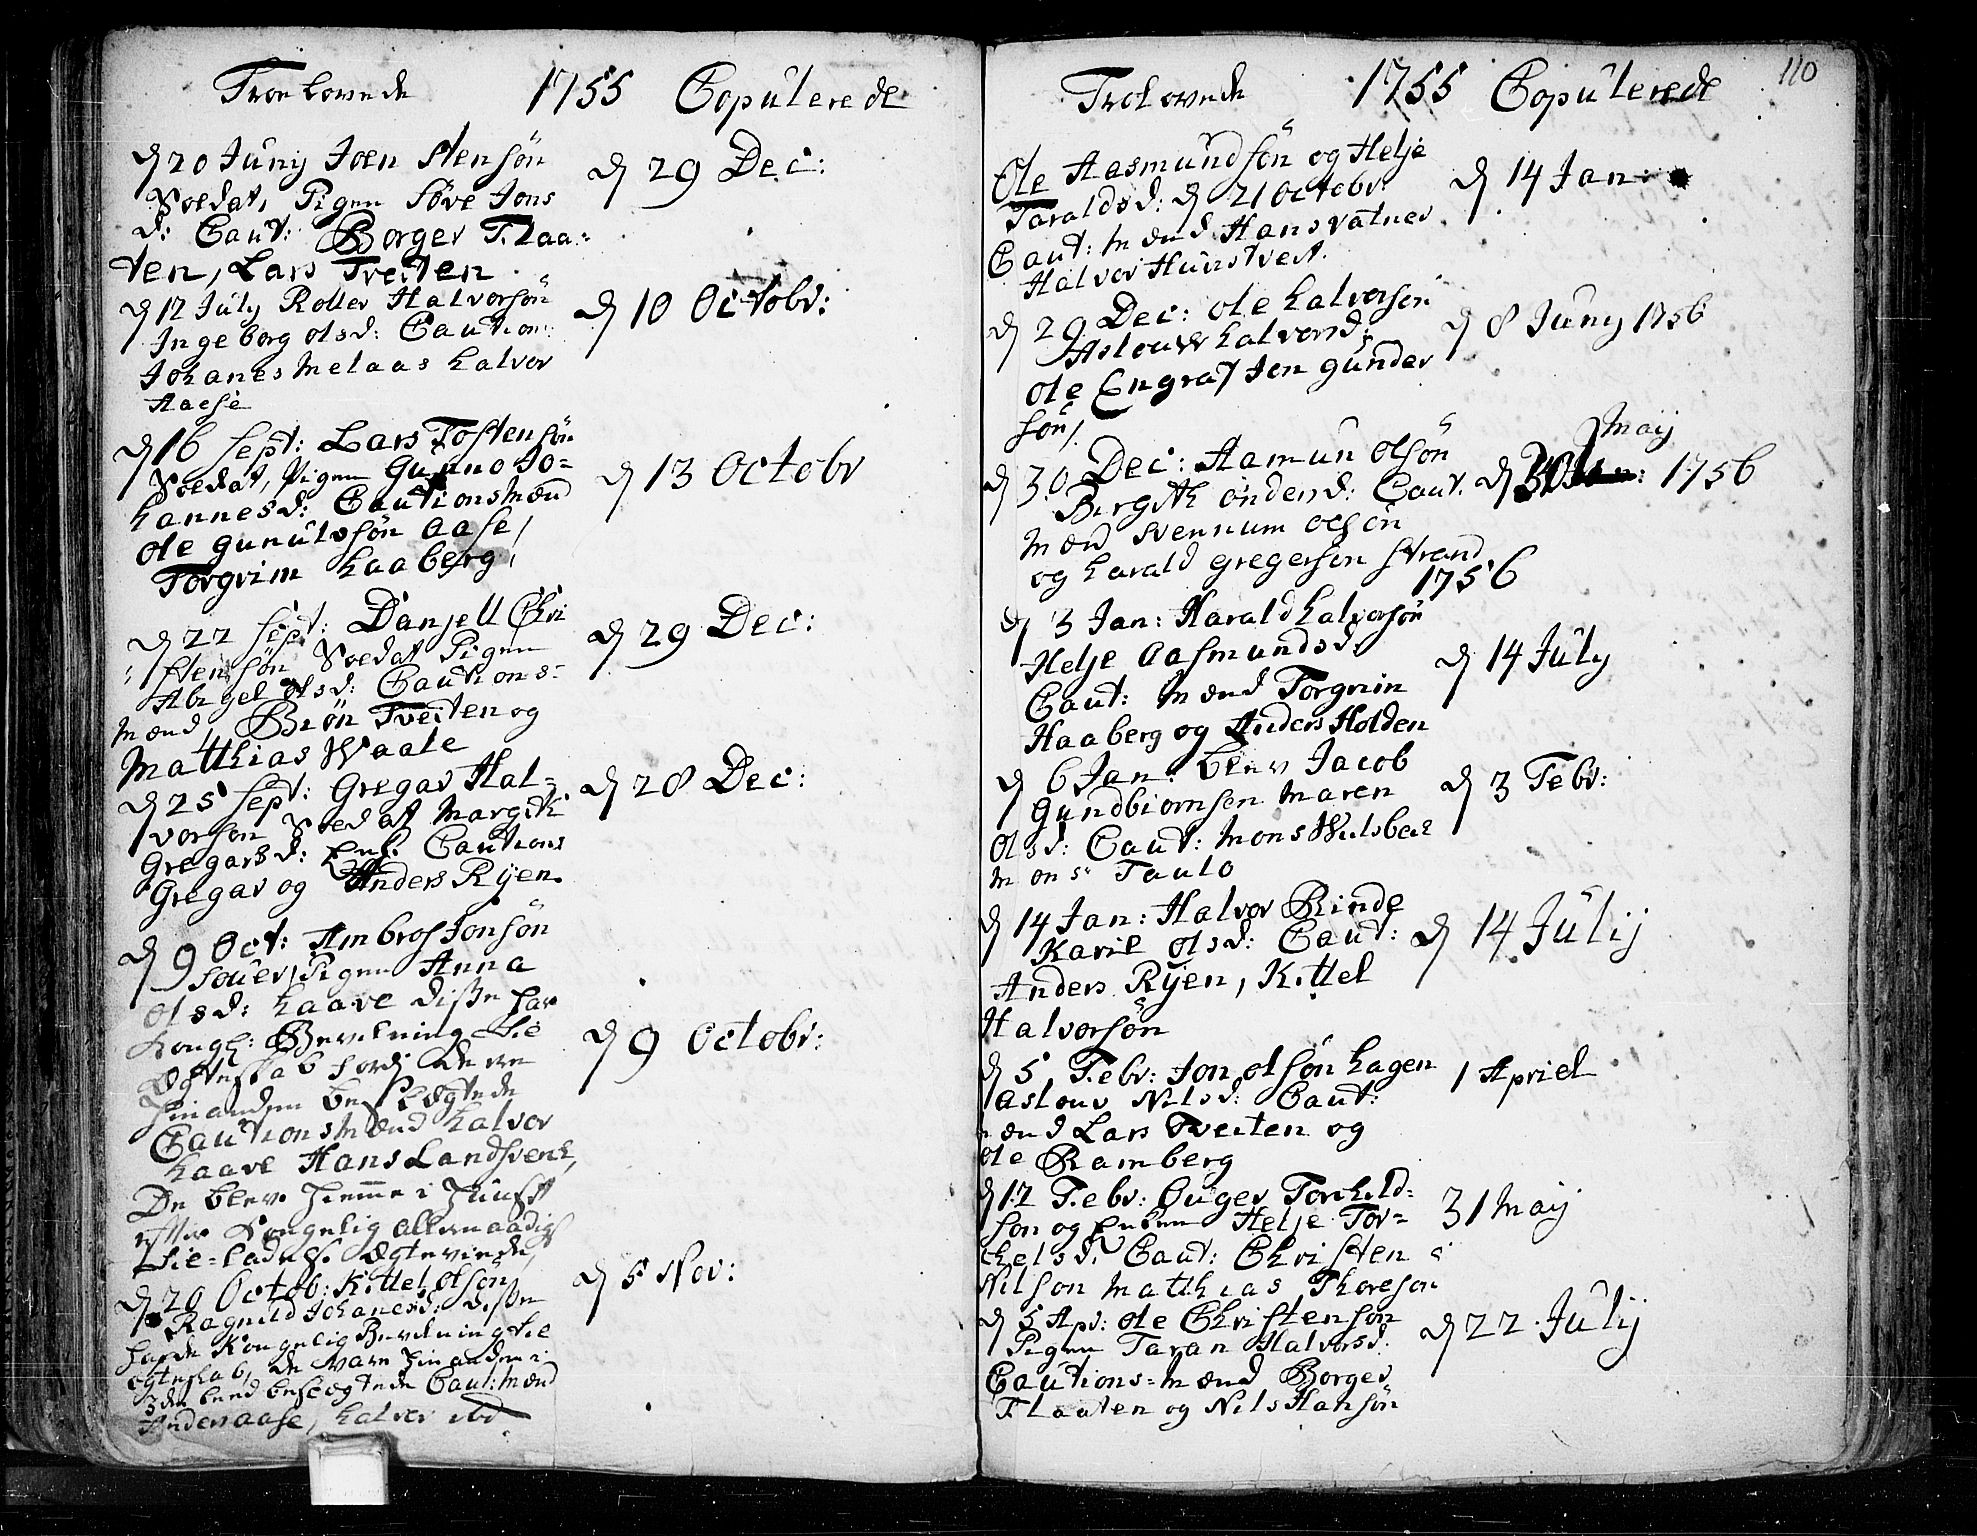 Troelovede 1755 Copulerede
d 20 Juny Joen Stensøn
Soldat, Pigen Søve Jons
d: Caut: Borger Flaa-
ten, Lars Tveiten
d 29 Dec:
d 12 July Roller Halvorsøn
Ingeborg olsd: Caution:
Johanes Melaas Halvor
Aase
d 10 Octobr:
d 16 Sept: Lars Tostensøn
Soldat, Pigen Gunno Jo-
hannesd: Cautionsmænd
Ole gunulvsøn Aase,
Torgrim haaberg,
d 13 Octobr
d 22 Sept: Danjell Chri
stensøn Soldat Pigen
Abigel olsd: Cautions-
mænd, Biøn Tveiten og
Matthias Waale
d 29 Dec:
d 25 Sept: Gregar Hal-
vorson Soldat Margith
Gregarsd: Enk. Cautions
Gregar og Anders Rijen.
d 28 Dec:
d 9 Oct: Ambros Jonsøn
Souer, Pigen Anna
olsd: haave disse har
Kongl: Bevilning til
Ægteskab fordj de ere
hinanden beslægtede
Cautionsmænd halvor
haave Hans Landsverk,
De blev hiemme i Huust
efter Kongelig allernaadigst
tilladelse Ægteviede,
d 9 Octobr:
d 20 Octob: Kittel olsøn
Ragnild Johanesd: disse
hafde Kongelig Bevilning til
ægteskab, de vare hinanden i
3die leed beslægtede Caut: mænd
Anders aase, halvor ibd
d 5 Nov:
Trolovede 1755 Copulerede 110
Ole Aasmundsøn og Helje
Taraldsd: d 21 Octobr:
Caut: mænd Hans Vatner
Halvor Hunstveit.
d 14 Jan:
d 29 Dec: Ole halvorsøn
Asloug halvorsd:
Ole Engraf Jon gunder
søn,
d 8 Juny 1756
d 30 Dec: Aamun olsøn
Birgith ondersd: Caut.
mænd Svennum olsøn
og harald gregerson Strand
maij
d 30 1756
1756
d 3 Jan: Harald halvorsøn
Helje Aasmundsd
Caut: mænd Torgrim
Haaberg og Anders Holden
d 14 July
d 6 Jan: blev Jacob
Gundbiornsen Maren
Olsd: Caut: Mons Wilsbek
Mons Taulo
d 3 Febr:
d 14 Jan: Halvor Rinde
Karil olsd: Caut:
Anders Rijen, Kittel
Halvorsøn
d 14 Julij
d 5 Febr: Jon olsøn hagen
Aslouv Nilsd: Caut:
mænd Lars Tveiten og
Ole Ramberg
1 Apriel
d 12 Febr: Ouger Torkild-
son og Enken Helje Tor-
kelsd. Caut: Christen
Nilson Matthias Thoreson
31 Maij
d 5 Apr: Ole Christenson
Pigen Taran Halvorsd.
Cautions-mænd Borger
Flaaten og Nils Hansøn
d 22 Julij